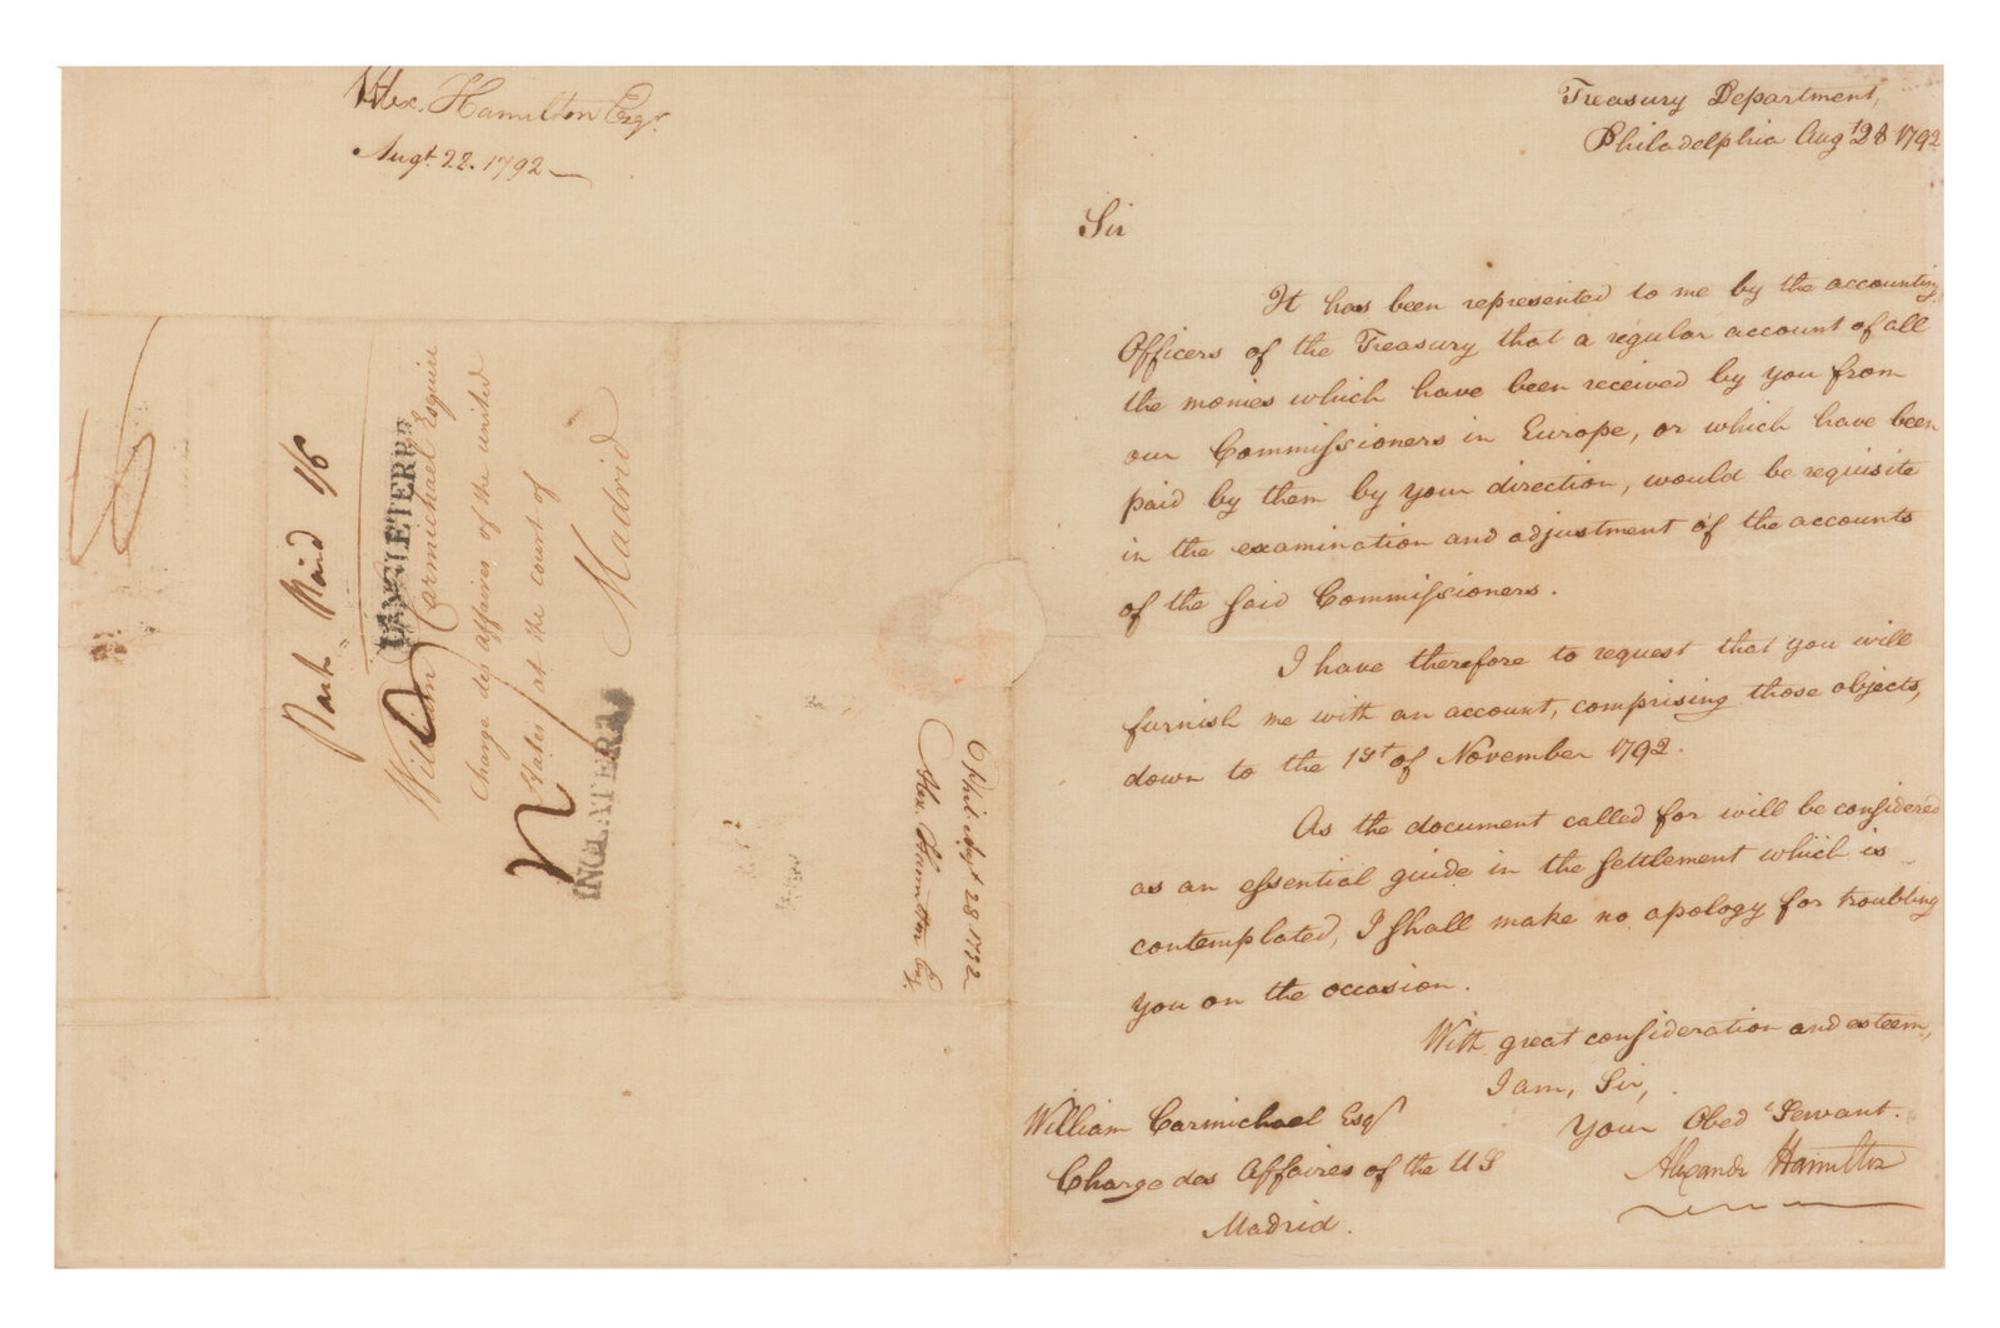 Alex. Hamilton Esqr.
Augt. 22. 1792
Treasury Department,
Philadelphia Augt 28 1792
Sir
It has been represented to me by the accounting
Officers of the Treasury that a regular account of all
the monies which have been received by you from
our Commissioners in Europe, or which have been
paid by them by your direction, would be requisite
in the examination and adjustment of the accounts
of the said Commissioners.
I have therefore to request that you will
furnish me with an account, comprising those objects,
down to the 1st of November 1792.
As the document called for will be considered
as an essential guide in the settlement which is
contemplated, I shall make no apology for troubling
you on the occasion.
With great consideration and esteem,
I am, Sir,
Your Obed Servant.
Alexandr Hamilton
William Carmichael Esqr
Charge des Affaires of the US
Madrid.
Paid 1/6
ANGLETERRE
William Carmichael Esquire
Charge des affaires of the united
States at the court of
Madrid
INGLATERRA
Phil. Augt 28. 1792
Alex. Hamilton Esq.